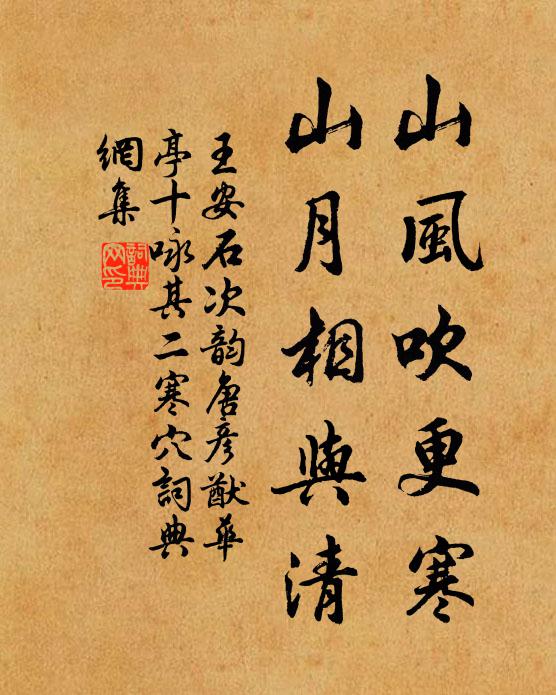 山風吹更寒
山月相與清
王安石次韵唐彥猷華
亭十咏其二寒穴詞典
網集
詞典
网印